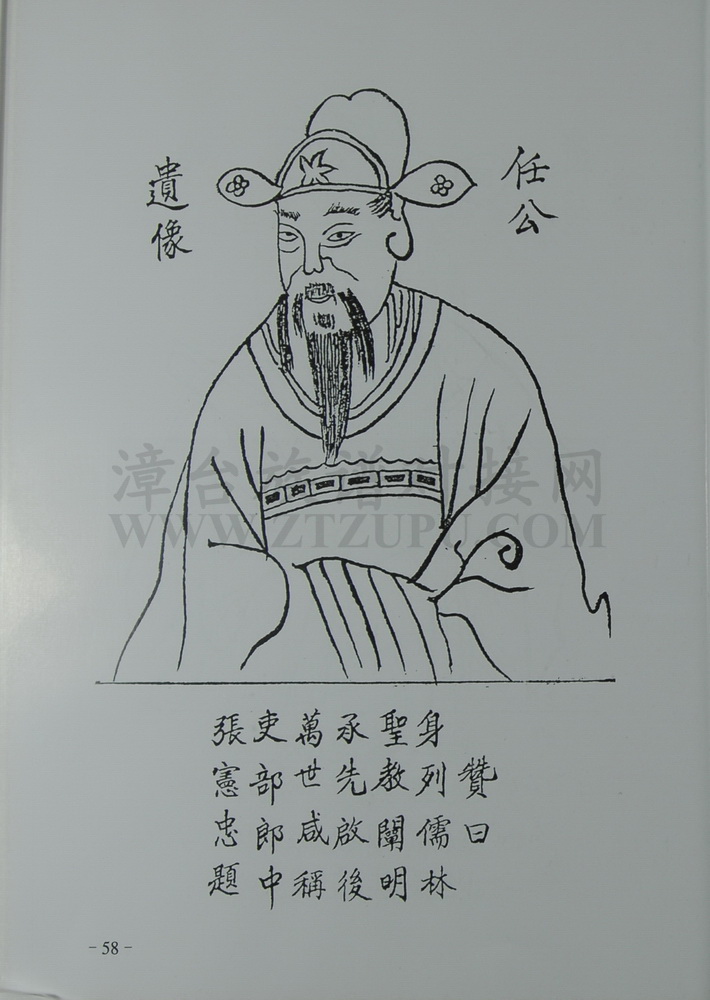 任公
遺像
漳台族谱对接网
WWW.ZTZUPU.COM
贊曰
身列儒林
聖教闡明
承先啟後
萬世咸稱
吏部郎中
張憲忠題
- 58 -